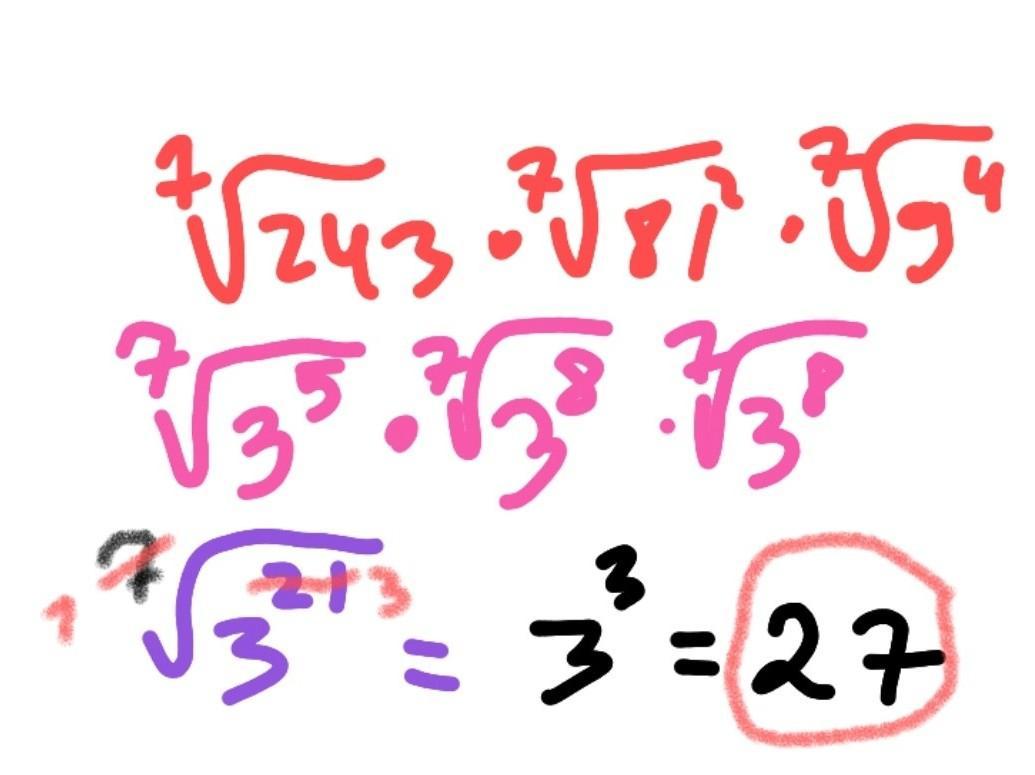 ⁷√243 · ⁷√81² · ⁷√9⁴
⁷√3⁵ · ⁷√3⁸ · ⁷√3⁸
1 ⁷√3²¹ 3 = 3³ = 27